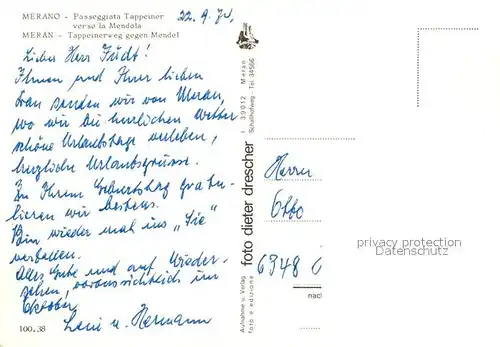 MERANO - Passeggiata Tappeiner
verso la Mendola
MERAN - Tappeinerweg gegen Mendel
22.9.74,
Lieber Herr Füdt!
Ihnen und Ihrer lieben
Frau senden wir von Meran,
wo wir bei herrlichem Wetter
schöne Urlaubstage verleben,
herzliche Urlaubsgrüsse.
Zu Ihrem Geburtstag gratu-
lieren wir bestens.
Bin wieder mal ins „Sie"
verfallen.
Alles Gute und auf Wieder-
sehen, voraussichtlich im
Oktober
Leni u. Hermann
100.38
foto dieter drescher
I 39012 Meran
Schallhofweg - Tel. 34566
Aufnahme u. Verlag
foto e edizione
Herrn
Otto
6948
nach
privacy protection
Datenschutz